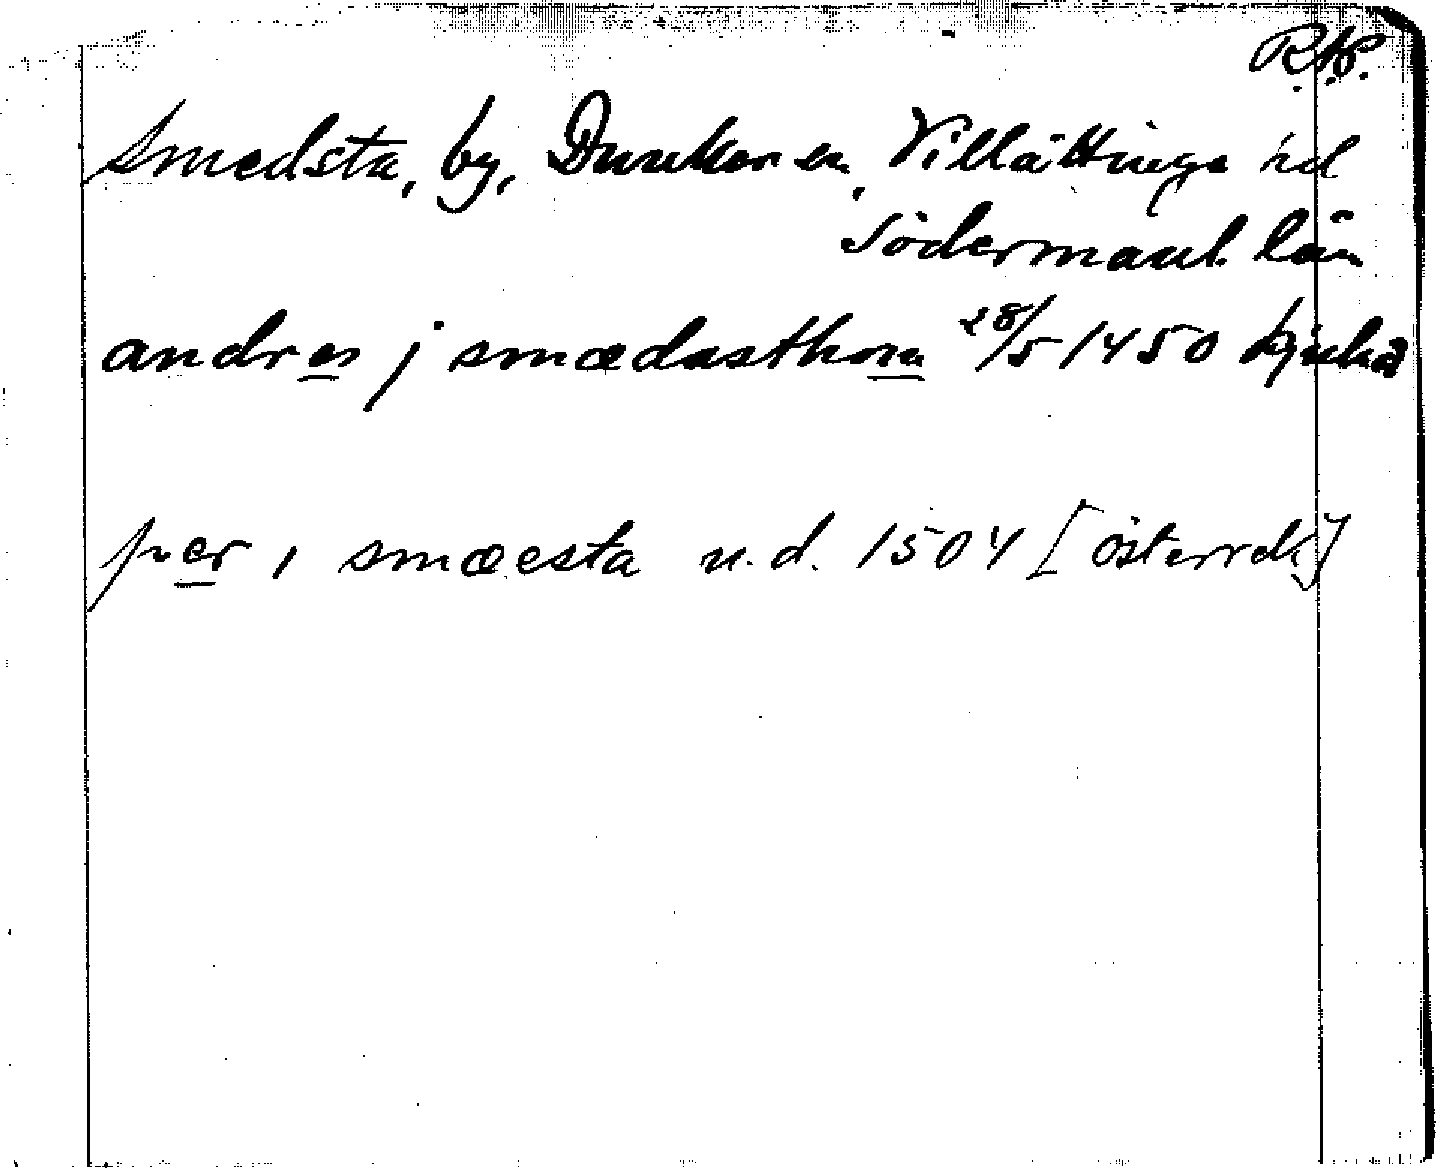 R.A.P.
Smedsta, by, Dunker sn, Villåttinge hd
Södermanl. län
andres j smædasthom 28/5 1450
per i smæesta u.d. 1504 [österrek]